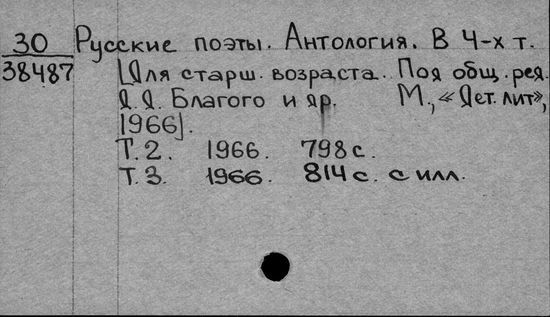 30 Русские поэты. Антология. В 4-х т.
38487 [Для старш. возраста. Под общ. ред.
Д. Д. Благого и др. М., «Дет. лит»,
1966].
Т. 2. 1966. 798 с.
Т. 3. 1966. 814 с. с илл.